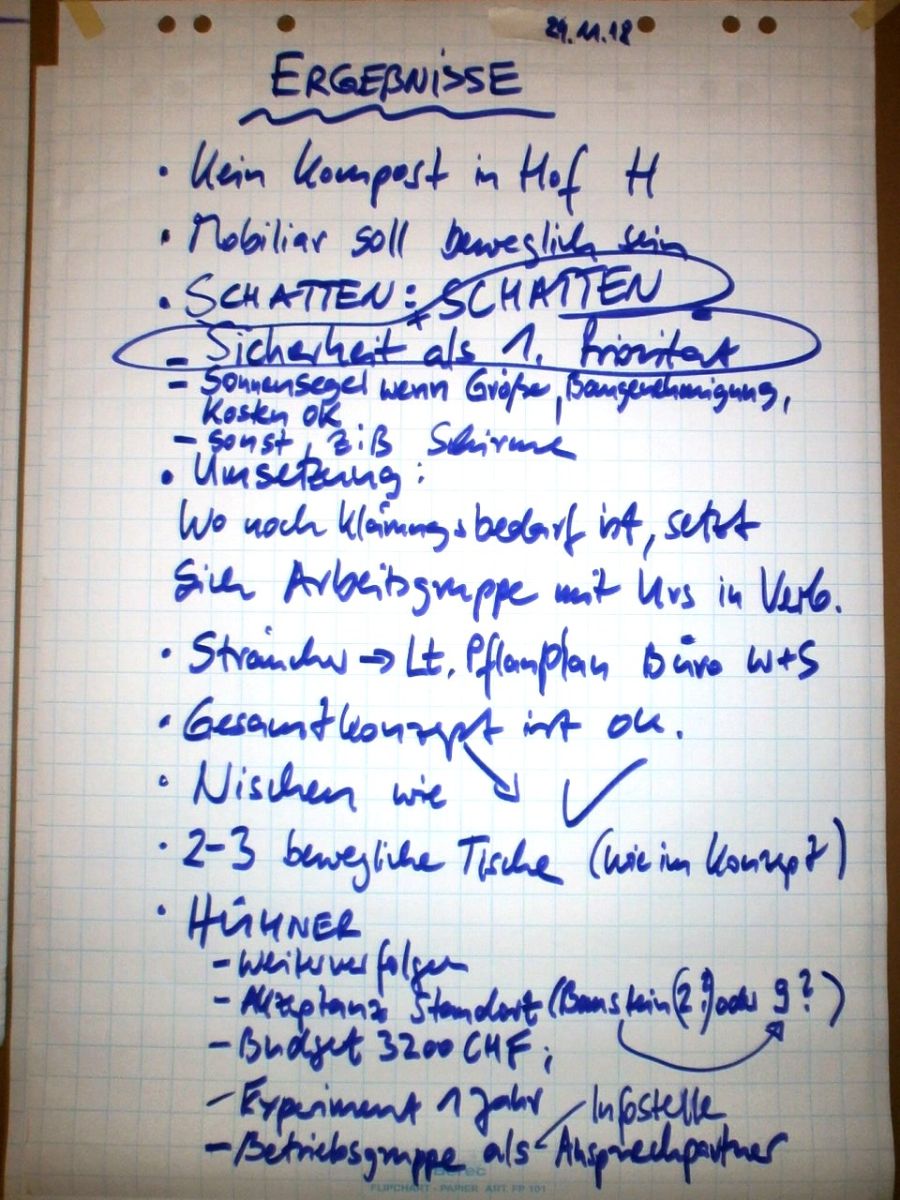 29.11.18
ERGEBNISSE
• Kein Kompost in Hof H
• Mobiliar soll beweglich sein
• SCHATTEN: SCHATTEN
- Sicherheit als 1. Priorität
- Sonnensegel wenn Größe, Baugenehmigung,
Kosten ok
- sonst, z.B. Schirme
• Umsetzung:
Wo noch Klärungsbedarf ist, setzt
sich Arbeitsgruppe mit Urs in Verb.
• Sträucher → Lt. Pflanplan Büro W+S
• Gesamtkonzept ist ok.
• Nischen wie ✓
• 2-3 bewegliche Tische (wie im Konzept)
• HÜHNER
- Weiterverfolgen
- Akzeptanz Standort (Baustein (2?) oder 9?)
- Budget 3200 CHF;
- Experiment 1 Jahr
- Betriebsgruppe als Infostelle
Ansprechpartner
FLIPCHART - PAPIER ART. FP 101